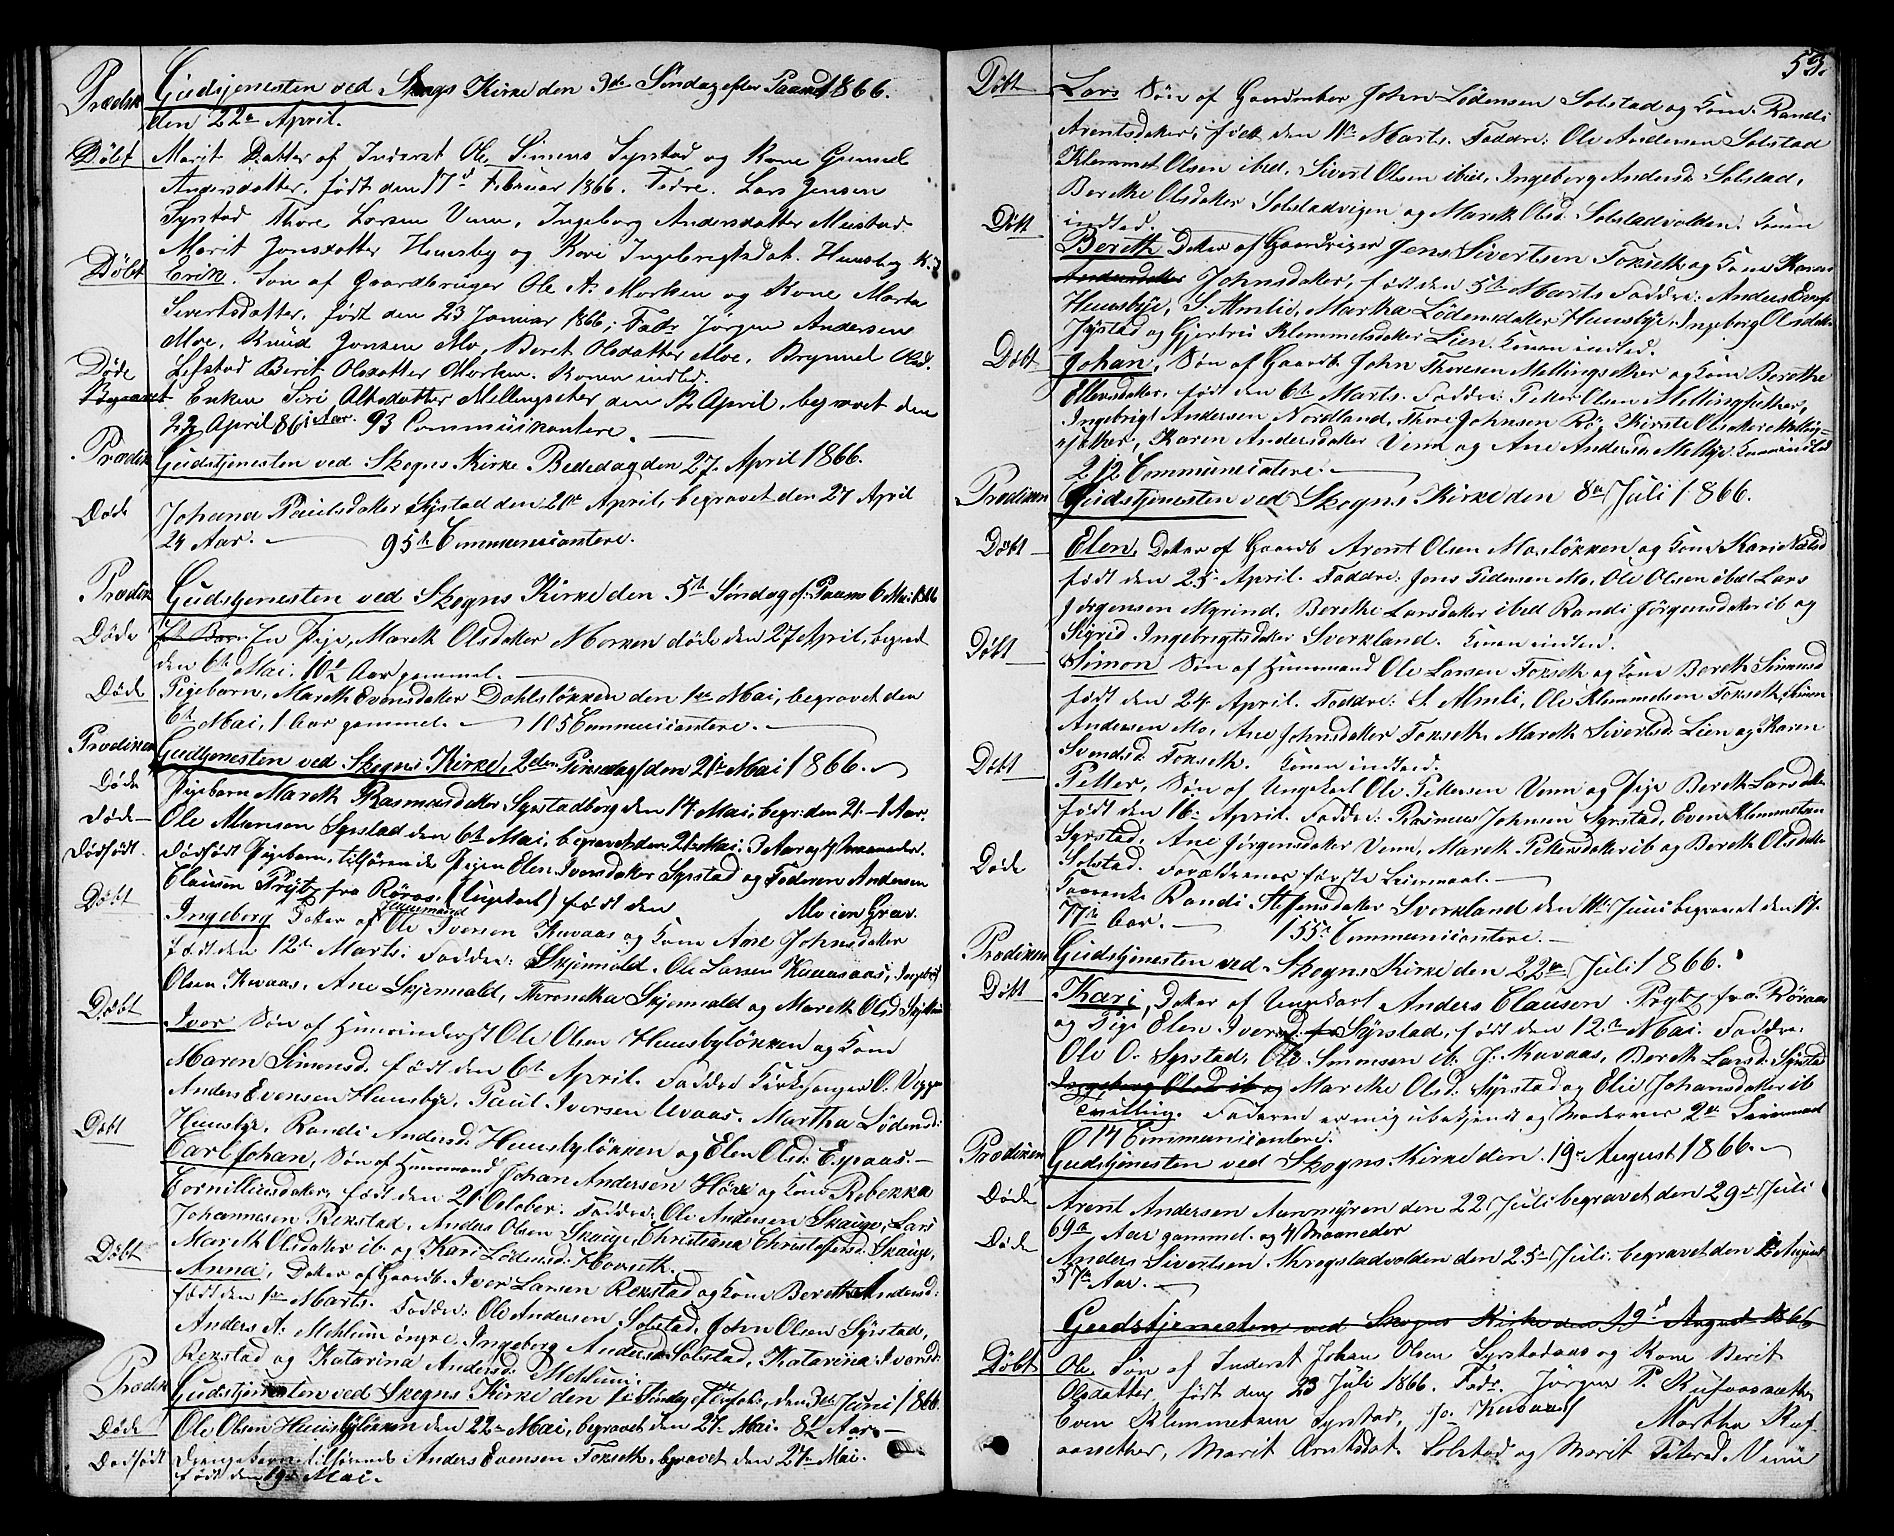 Prædik Gudstjenesten ved Skogns Kirke den 3de Søndag efter Paaske 1866.
den 22de April.
Døbt Marit Datter af Inderst Ole Simens Syrstad og Kone Gunnel
Andersdatter, født den 17de Februar 1866. Fadre. Lars Jensen
Syrstad Thore Larsen Venn, Ingeborg Andersdatter Meistad
Marit Jonsdatter Hemsby og Kari Ingebrigtsdat. Hemsby K.
Døbt Erik. Søn af Gaardbruger Ole A. Morken og Kone Marta
Sivertsdatter, født den 23 Januar 1866; Fadr Jørgen Andersen
Moe, Knud Jonsen Mo, Beret Olsdatter Moe, Brynnel Olsd.
Lefstad Berit Olsdatter Morken. Konen indled.
Døde Begravet Enken Siri Altsdatter Mellingseter den 12 April, begravet den
22 April 86 Aar. 93 Communikantere.
Prædik Gudstjenesten ved Skogns Kirke Bededag den 27. April 1866.
Døde Johana Paulsdatter Systad den 20de April, begravet den 27 April
24 Aar. 95 Communicantere.
Prædik Gudstjenesten ved Skogns Kirke den 5te Søndag ef. Paaske 6 Mai 1866
Døde Et Barn. En Pige, Mareth Olsdatter Morken døde den 27 April, begravet
den 6te Mai. 10 Aar gammel.
Døde Pigebarn, Mareth Evensdatter Dahlsløkken den 1ste Mai, begravet den
6te Mai, 1 Aar gammel. 105 Communicantere.
Prædiken Gudtjenesten ved Skogns Kirke, 2den Pinsedag den 21de Mai 1866.
Døde Pigebarn Mareth Rasmusdatter Syrstadberg den 14 Mai, begr. den 21. 1 Aar.
Døde Ole Monsen Syrstad den 6te Mai, begravet den 21. Mai. 3 Aar og 4 Maaneder.
Dødfødt. Dødfødt Pigebarn, tilhørende Pigen Elen Iversdatter Syrstad og Faderen Andersen
Clausen Prytz fra Røros. (Ungkarl) født den Mo ion Grav.
Døbt Ingeborg Datter af Huusmand Ole Iversen Kuvaas og Kone Ane Johnsdatter
født den 12te Marts. Faddre: Skjenvald. Ole Larsen Kuvaas, Ingebrigt
Olsen Kuvaas, Ane Skjenvald, Thronetha Skjenvald og Mareth Olsd.
Døbt Iver Søn af Huusinderst Ole Olsen Hemsbyløkken og Kone
Maren Simonsd. født den 6te April. Faddre Kirkesanger O. Vegge
Anders Evensen Hemsbye. Paul Iversen Uvaas. Martha Lødensd:
Hemsbye. Randi Andersd. Hemsbyløkken og Elen Olsd. Espaas.
Døbt Carl Johan, Søn af Huusmand Johan Andersen Høve og Kone Rebekka
Cornilliusdatter, født den 21 October. Faddre: Ole Andersen Skauge, Lars
Johannesen Rekstad. Anders Olsen Skauge, Christiana Christofersd: Skauge,
Mareth Olsdatter ib. og Kari Lødensd: Hovseth.
Døbt Anna, Datter af Gaardb. Iver Larsen Rekstad og Kone Bereth Andersd:
født den 1ste Marts. Faddre: Ole Andersen Solstad, John Olsen Syrstad,
Anders A. Mehlum øvgre, Ingeborg Andersd Solstad, Katarina Iversd:
Rekstad og Katarina Andersd: Mehlum.
Prædik Gudstjenesten ved Skogns Kirke den 1te Søndag ef. Trefol., den 3die Juni 1866.
Døde Ole Olsen Hemsbyløkken den 22de Mai, begravet den 27. Mai. 8 Aar.
Dødfødt Drengebarn tilhørende Anders Evensen Fokseth begravet den 27. Mai.
født den 19de Mai.
53.
Døbt Lars Søn af Gaardmbr John Lødensen Solstad og Kone Randi
Arentsdatter, født den 11te Marts. Faddre: Ole Andersen Solstad
Klemmet Olsen ibid, Sivert Olsen ibid, Ingeborg Andersd: Solstad,
Berethe Olsdatter Solstadvigen og Mareth Olsd Solstadvolden. Konen
indled.
Døbt Bereth Datter af Gaardbruger Jens Sivertsen Fokseth og Kone Karen
Andersdatter Johnsdatter, født den 5te Marts Faddre: Anders Evens.
Hemsbye, E Almlie, Martha Lødensdatter Hemsbye, Ingeborg Olsdatter
Syrstad og Gjertru Klemmetsdatter Lien. Konen indled.
Døbt Johan, Søn af Gaardb. John Thoresen Mellingsether og Kone Berethe
Ellevsdatter, født den 6te Marts. Faddre: Petter Olsen Mellingsether,
Ingebrigt Andersen Nordland, Thore Johnsen Rø, Kirste Olsdatter Mellings-
sæther, Karen Andersdatter Venn og Ane Andersd: Melbye. Konen indled
212 Communicantere.
Prædiken Gudstjenesten ved Skogns Kirke den 8de Juli 1866.
Døbt Elen, Datter af Gaardb Arent Olsen Mosløkken og Kone Kari Nielsd
født den 25. April. Faddre: Jens Pedersen Mo, Ole Olsen ibid Lars
Jørgensen Myrind, Berethe Larsdatter ibid Randi Jørgensdatter ib og
Sigrid Ingebrigtsdatter Sverkland. Konen indled.
Døbt Simon Søn af Huusmand Ole Larsen Fokseth og Kone Bereth Simonsd
født den 24. April. Faddre: E. Almli, Ole Klemmetsen Fokseth, Simon
Andersen Mo, Ane Johnsdatter Fokseth, Mareth Sivertsd: Lien og Karen
Svendsd: Fokseth. Konen indled.
Døbt Petter, Søn af Ungkarl Ole Pettersen Venn og Pige Bereth Larsdatter
født den 16. April. Faddre: Rasmus Johnsen Syrstad, Even Klemmetsen
Syrstad, Ane Jørgensdatter Venn, Mareth Pettersdatter ib og Bereth Olsdatter
Solstad. Forældrenes første Leiermaal.
Døde Faarenke Randi Steffensdatter Sverkland den 11te Juni begravet den 17.
77de Aar. 155 Communicantere.
Prædiken Gudstjenesten ved Skogns Kirke den 22de Juli 1866.
Døbt Kari, Datter af Ungkarl Anders Clausen Prytz fra Røraas
og Pige Elen Iversd. fra Syrstad, født den 12te Mai. Faddre:
Ole O. Syrstad, Ole Simensen ib. J. Kuvaas, Bereth Larsd: Syrstad
Ingeborg Olsd ib og Marethe Olsd: Syrstad og Elie Johansdatter ib
Tvilling. Faderen er mig ubekjendt og Moderens 2det Leiermaal
14 Communicantere.
Prædiken Gudstjenesten ved Skogns Kirke den 19de August 1866.
Døde Arent Andersen Aunmyren den 22 Juli begravet den 29de Juli
69de Aar gammel og 4 Maaneder
Døde Anders Sivertsen Krogstadvolden den 25de Juli begravet den August
57de Aar.
Gudstjenesten ved Skogns Kirke den 19de August 1866
Døbt Ole Søn af Inderst Johan Olsen Syrstadaas og Kone Berit
Olsdatter, født den 23 Juli 1866. Fadr. Jørgen P. Rufaassæther
Even Klemmetsen Syrstad, Jo. Kuvaas Martha Ruf-
aassether, Marit Arntsdat. Solstad og Marit Petersd. Venn